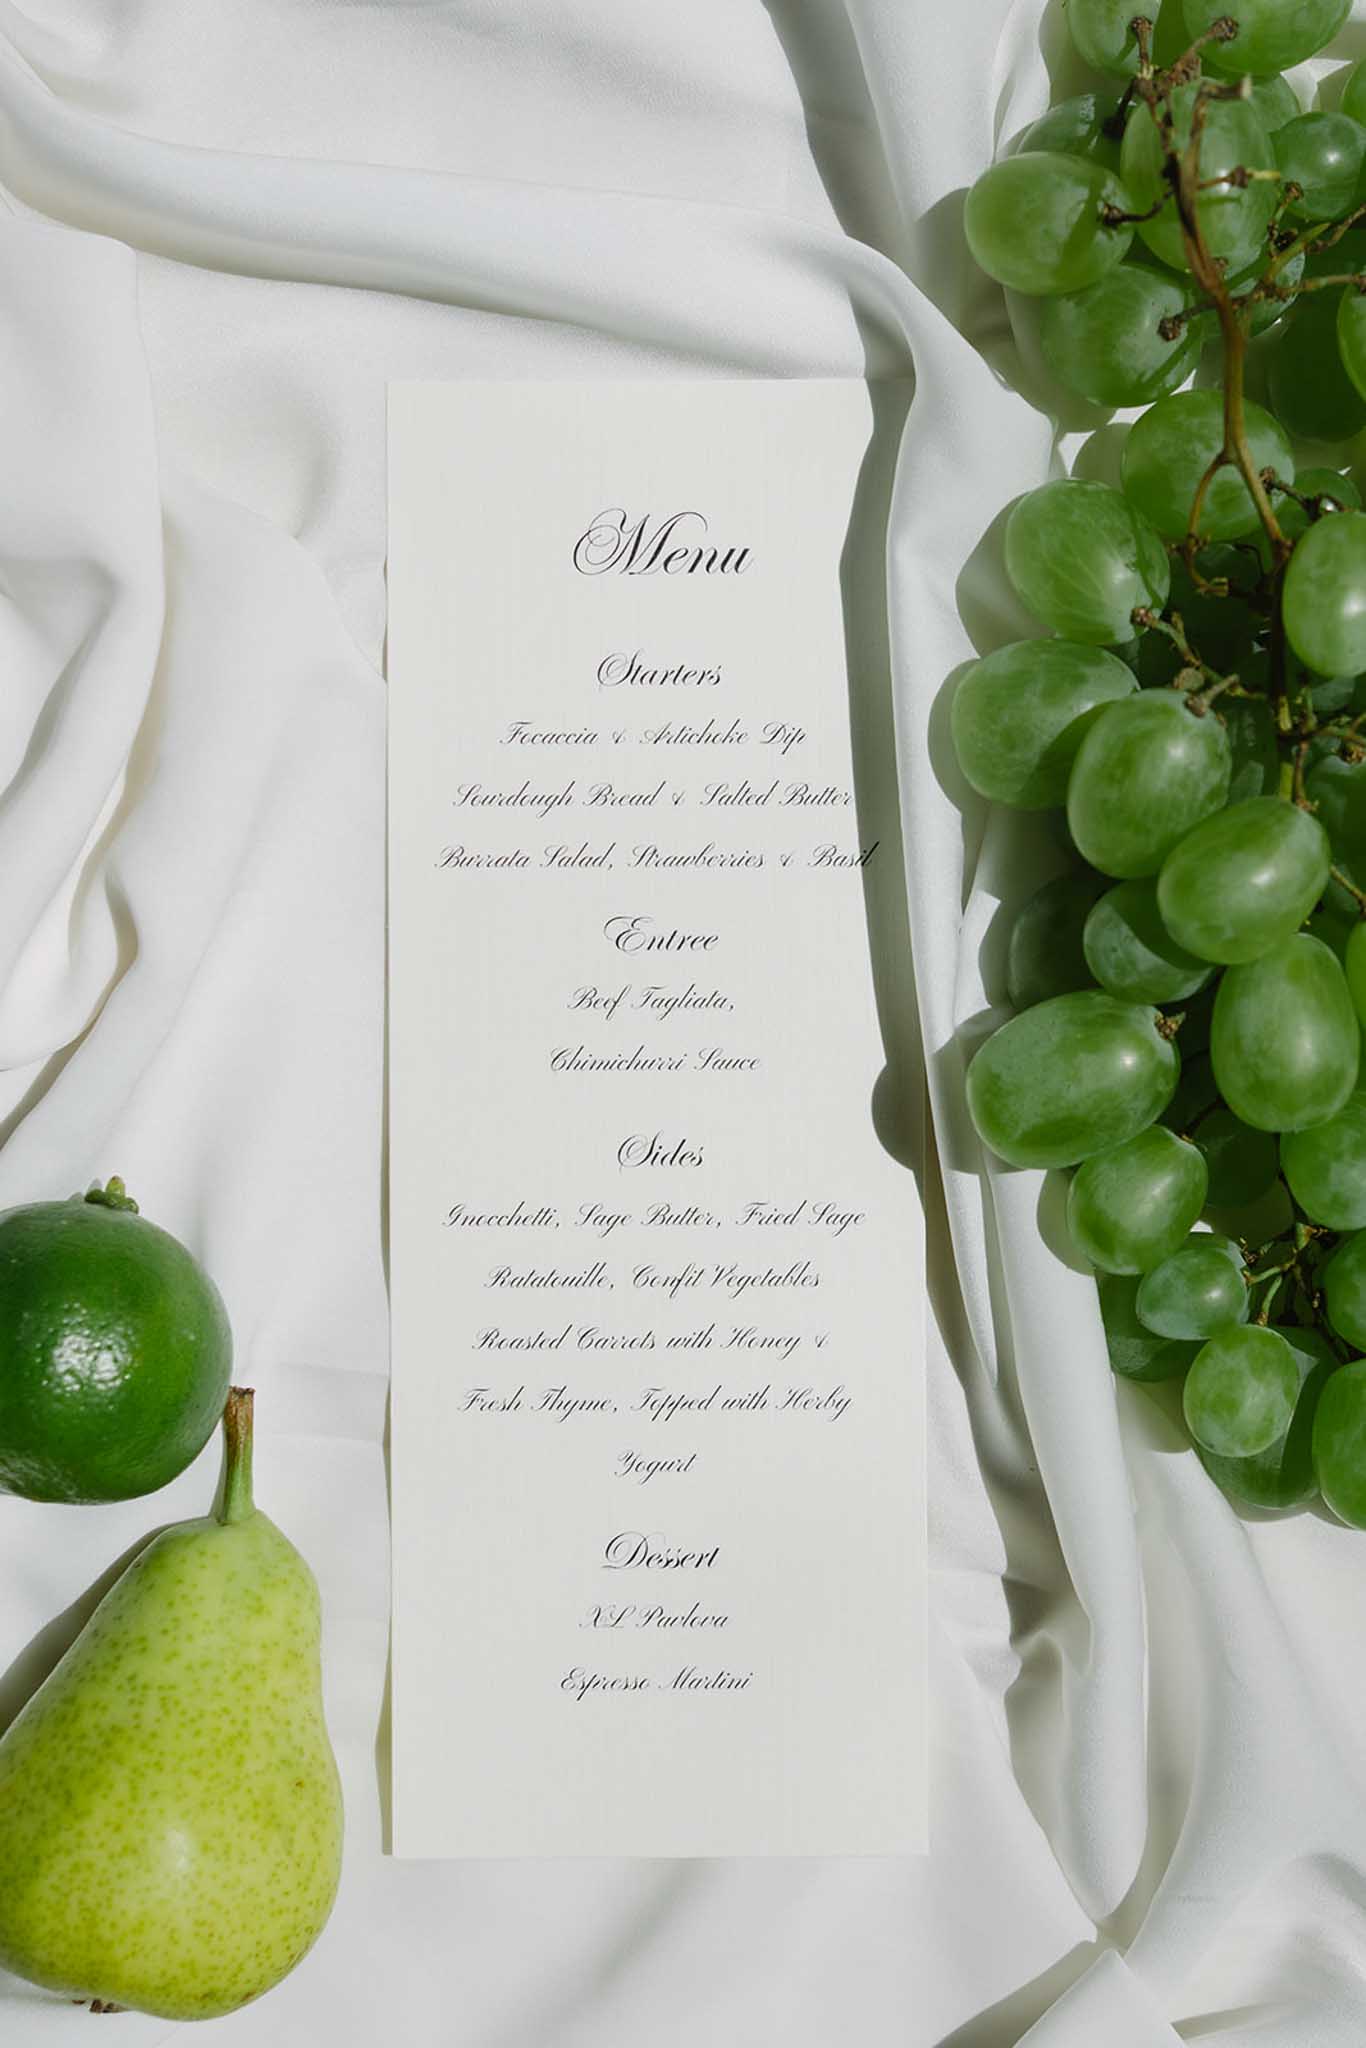 Menu
Starters
Focaccia & Artichoke Dip
Sourdough Bread & Salted Butter
Burrata Salad, Strawberries & Basil
Entree
Beef Tagliata,
Chimichurri Sauce
Sides
Gnocchetti, Sage Butter, Fried Sage
Ratatouille, Confit Vegetables
Roasted Carrots with Honey &
Fresh Thyme, Topped with Herby
Yogurt
Dessert
XL Pavlova
Espresso Martini